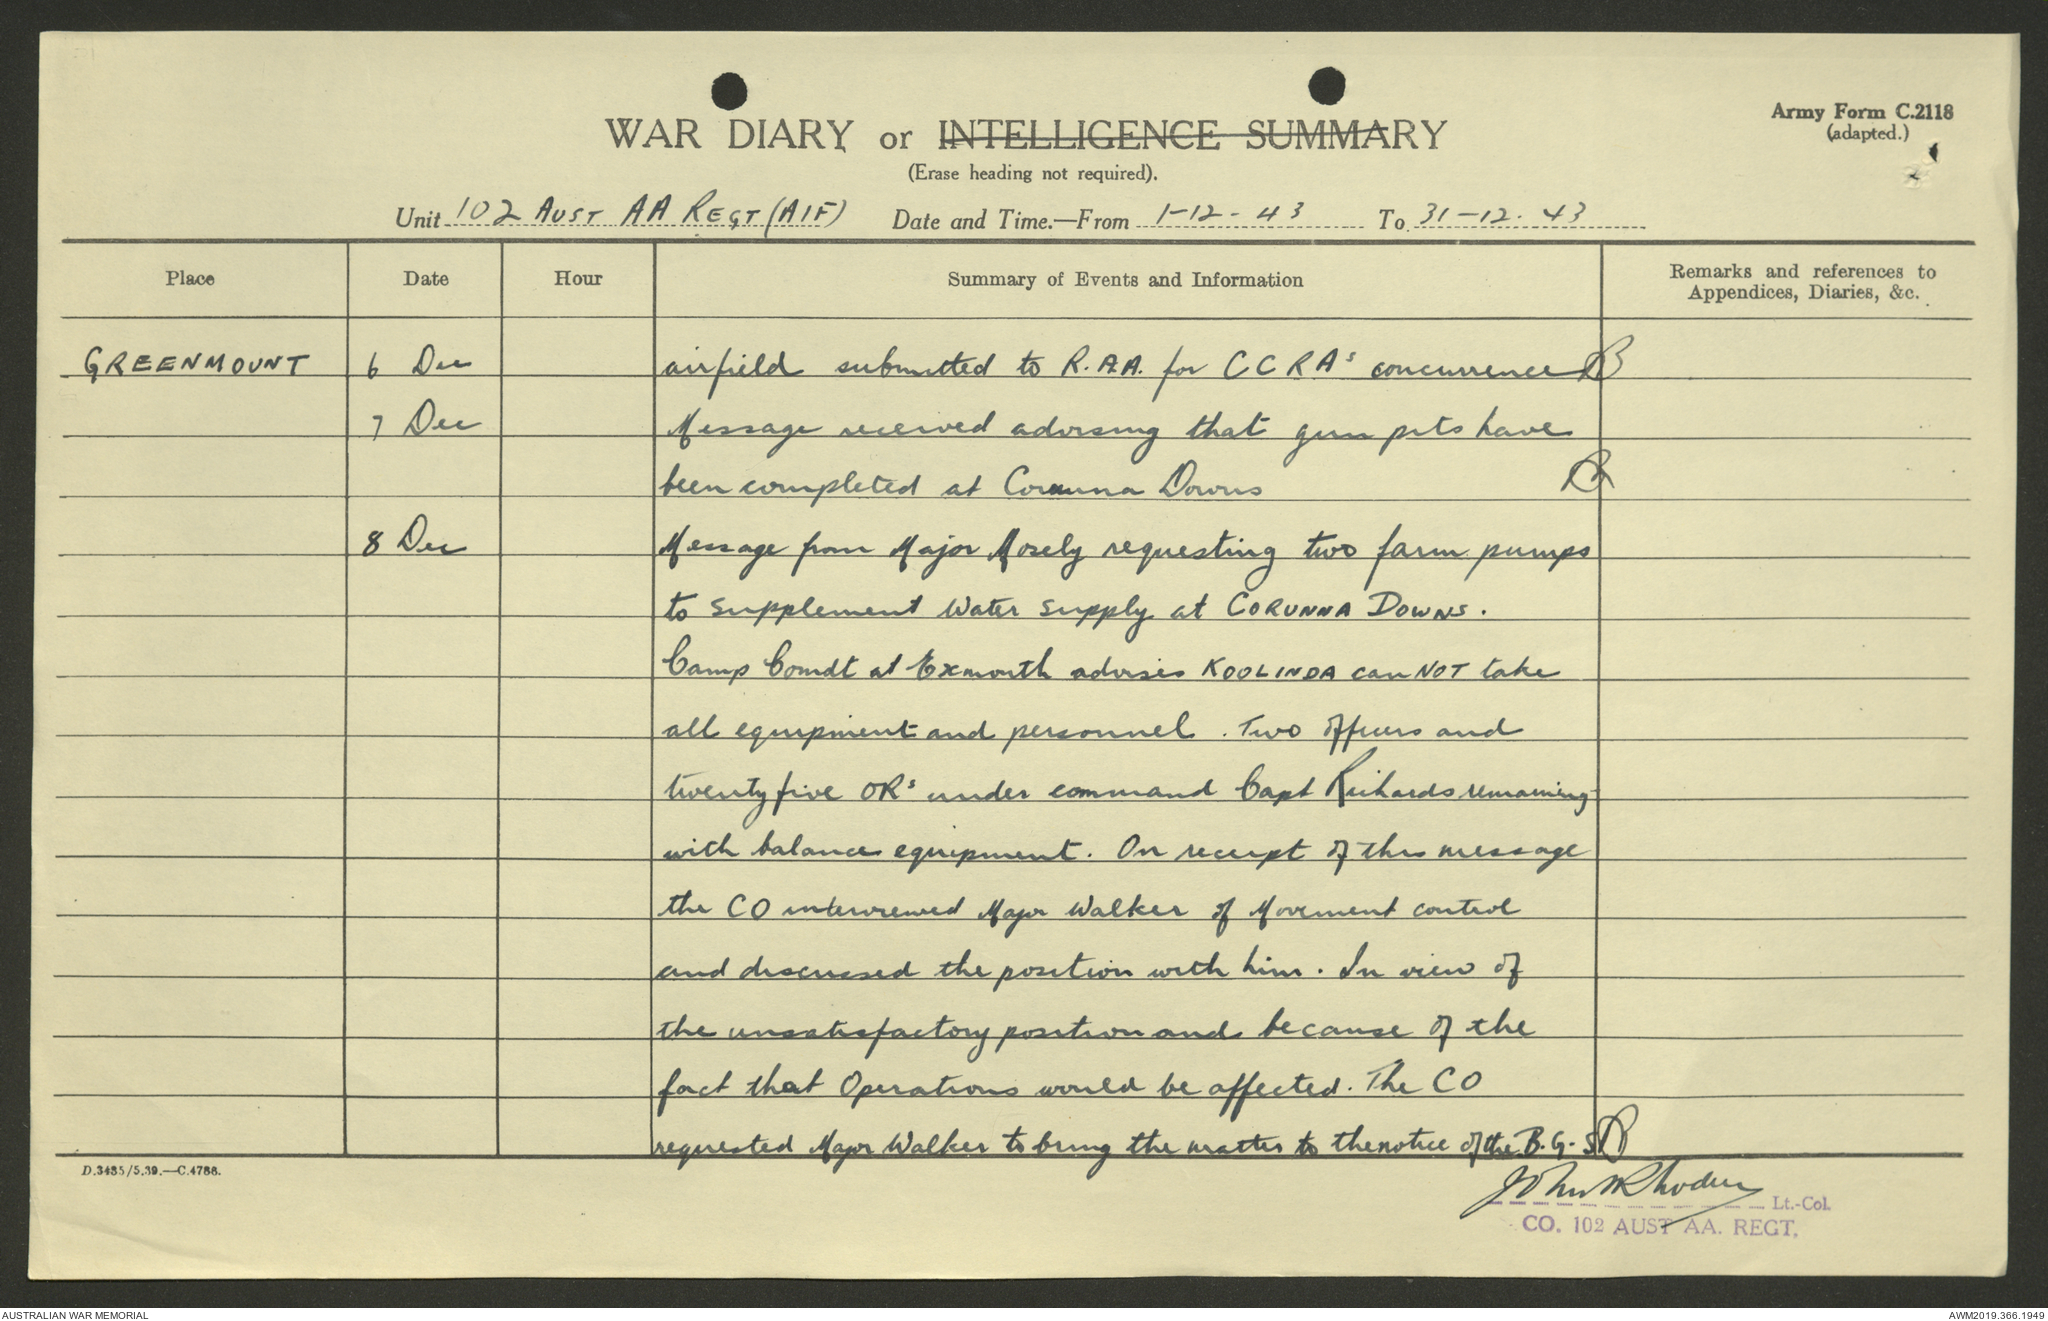 Army Form C.2118
(adapted.)
WAR DIARY or INTELLIGENCE SUMMARY
(Erase heading not required).
Unit 102 AUST AA REGT (AIF) Date and Time.—From 1-12-43 To 31-12.43
Place Date Hour Summary of Events and Information Remarks and references to
Appendices, Diaries, &c.
GREENMOUNT 6 Dec airfield submitted to R.A.A. for CCRA's concurrence
7 Dec Message received advising that gun pits have
been completed at Corunna Downs
8 Dec Message from Major Mosely requesting two farm pumps
to supplement water supply at CORUNNA DOWNS.
Camp Comdt at Exmouth advises KOOLINDA can NOT take
all equipment and personnel. Two officers and
twenty five ORs under command Capt Richards remaining
with balance equipment. On receipt of this message
the CO interviewed Major Walker of Movement control
and discussed the position with him. In view of
the unsatisfactory position and because of the
fact that Operations would be affected. The CO
requested Major Walker to bring the matter to the notice of the B.G.S
D.3485/5.39.—C.4786.
Lt.-Col.
CO. 102 AUST AA. REGT.
AUSTRALIAN WAR MEMORIAL AWM2019.366.1949